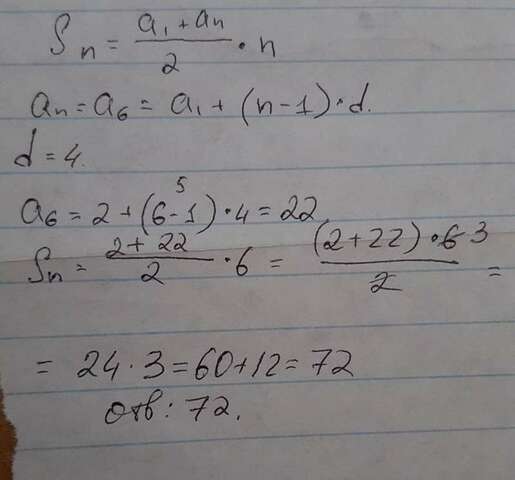 Sn = (a1 + an)/2 · n
an = a6 = a1 + (n - 1) · d.
d = 4.
5
a6 = 2 + (6 - 1) · 4 = 22
Sn = (2 + 22)/2 · 6 = ((2 + 22) · 6 3)/2 =
= 24 · 3 = 60 + 12 = 72
отв: 72.